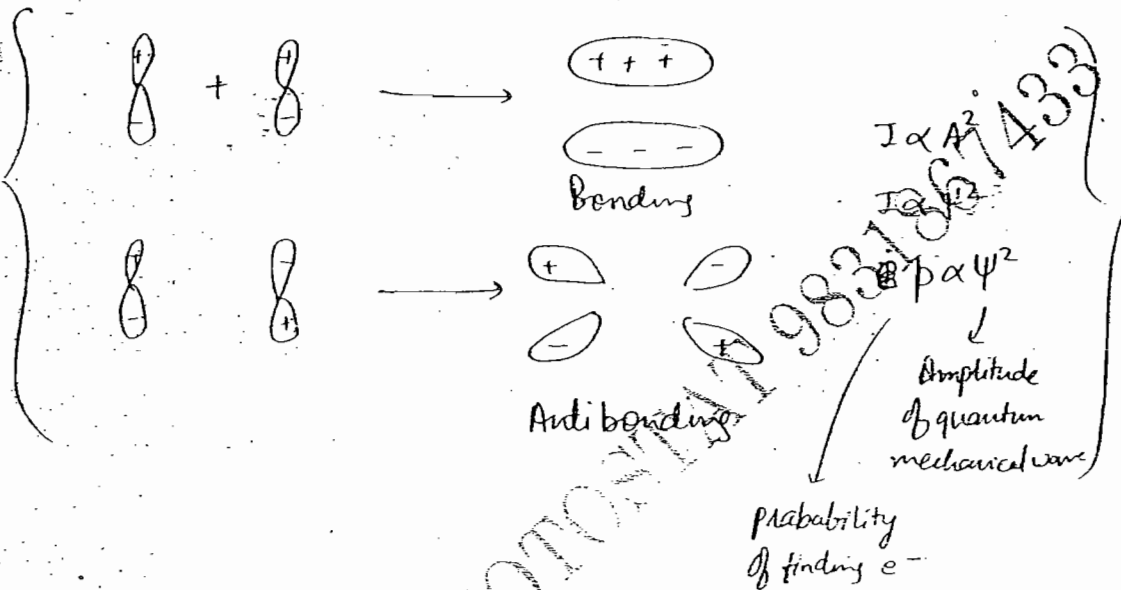 + + + + + +
- - - - -
Bonding
I α A²
+ - + -
- + - +
p α ψ²
Antibonding
Amplitude
of quantum
mechanical wave
probability
of finding e⁻
OTOSTAT 9831867433